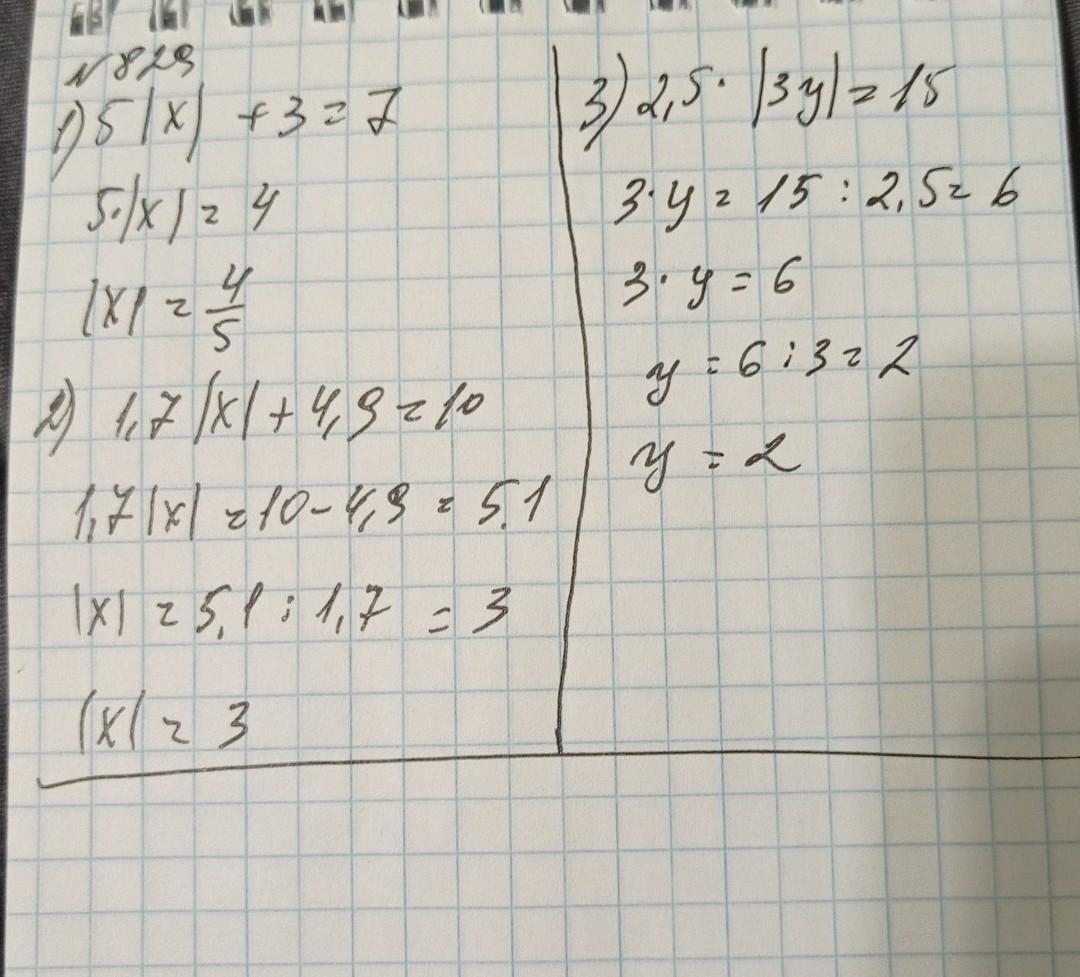 N829
1) 5|x| + 3 = 7
5·|x| = 4
|x| = 4/5
2) 1,7|x| + 4,9 = 10
1,7|x| = 10 - 4,9 = 5.1
|x| = 5,1 : 1,7 = 3
|x| = 3
3) 2,5· |3y| = 15
3·y = 15 : 2,5 = 6
3·y = 6
y = 6 : 3 = 2
y = 2